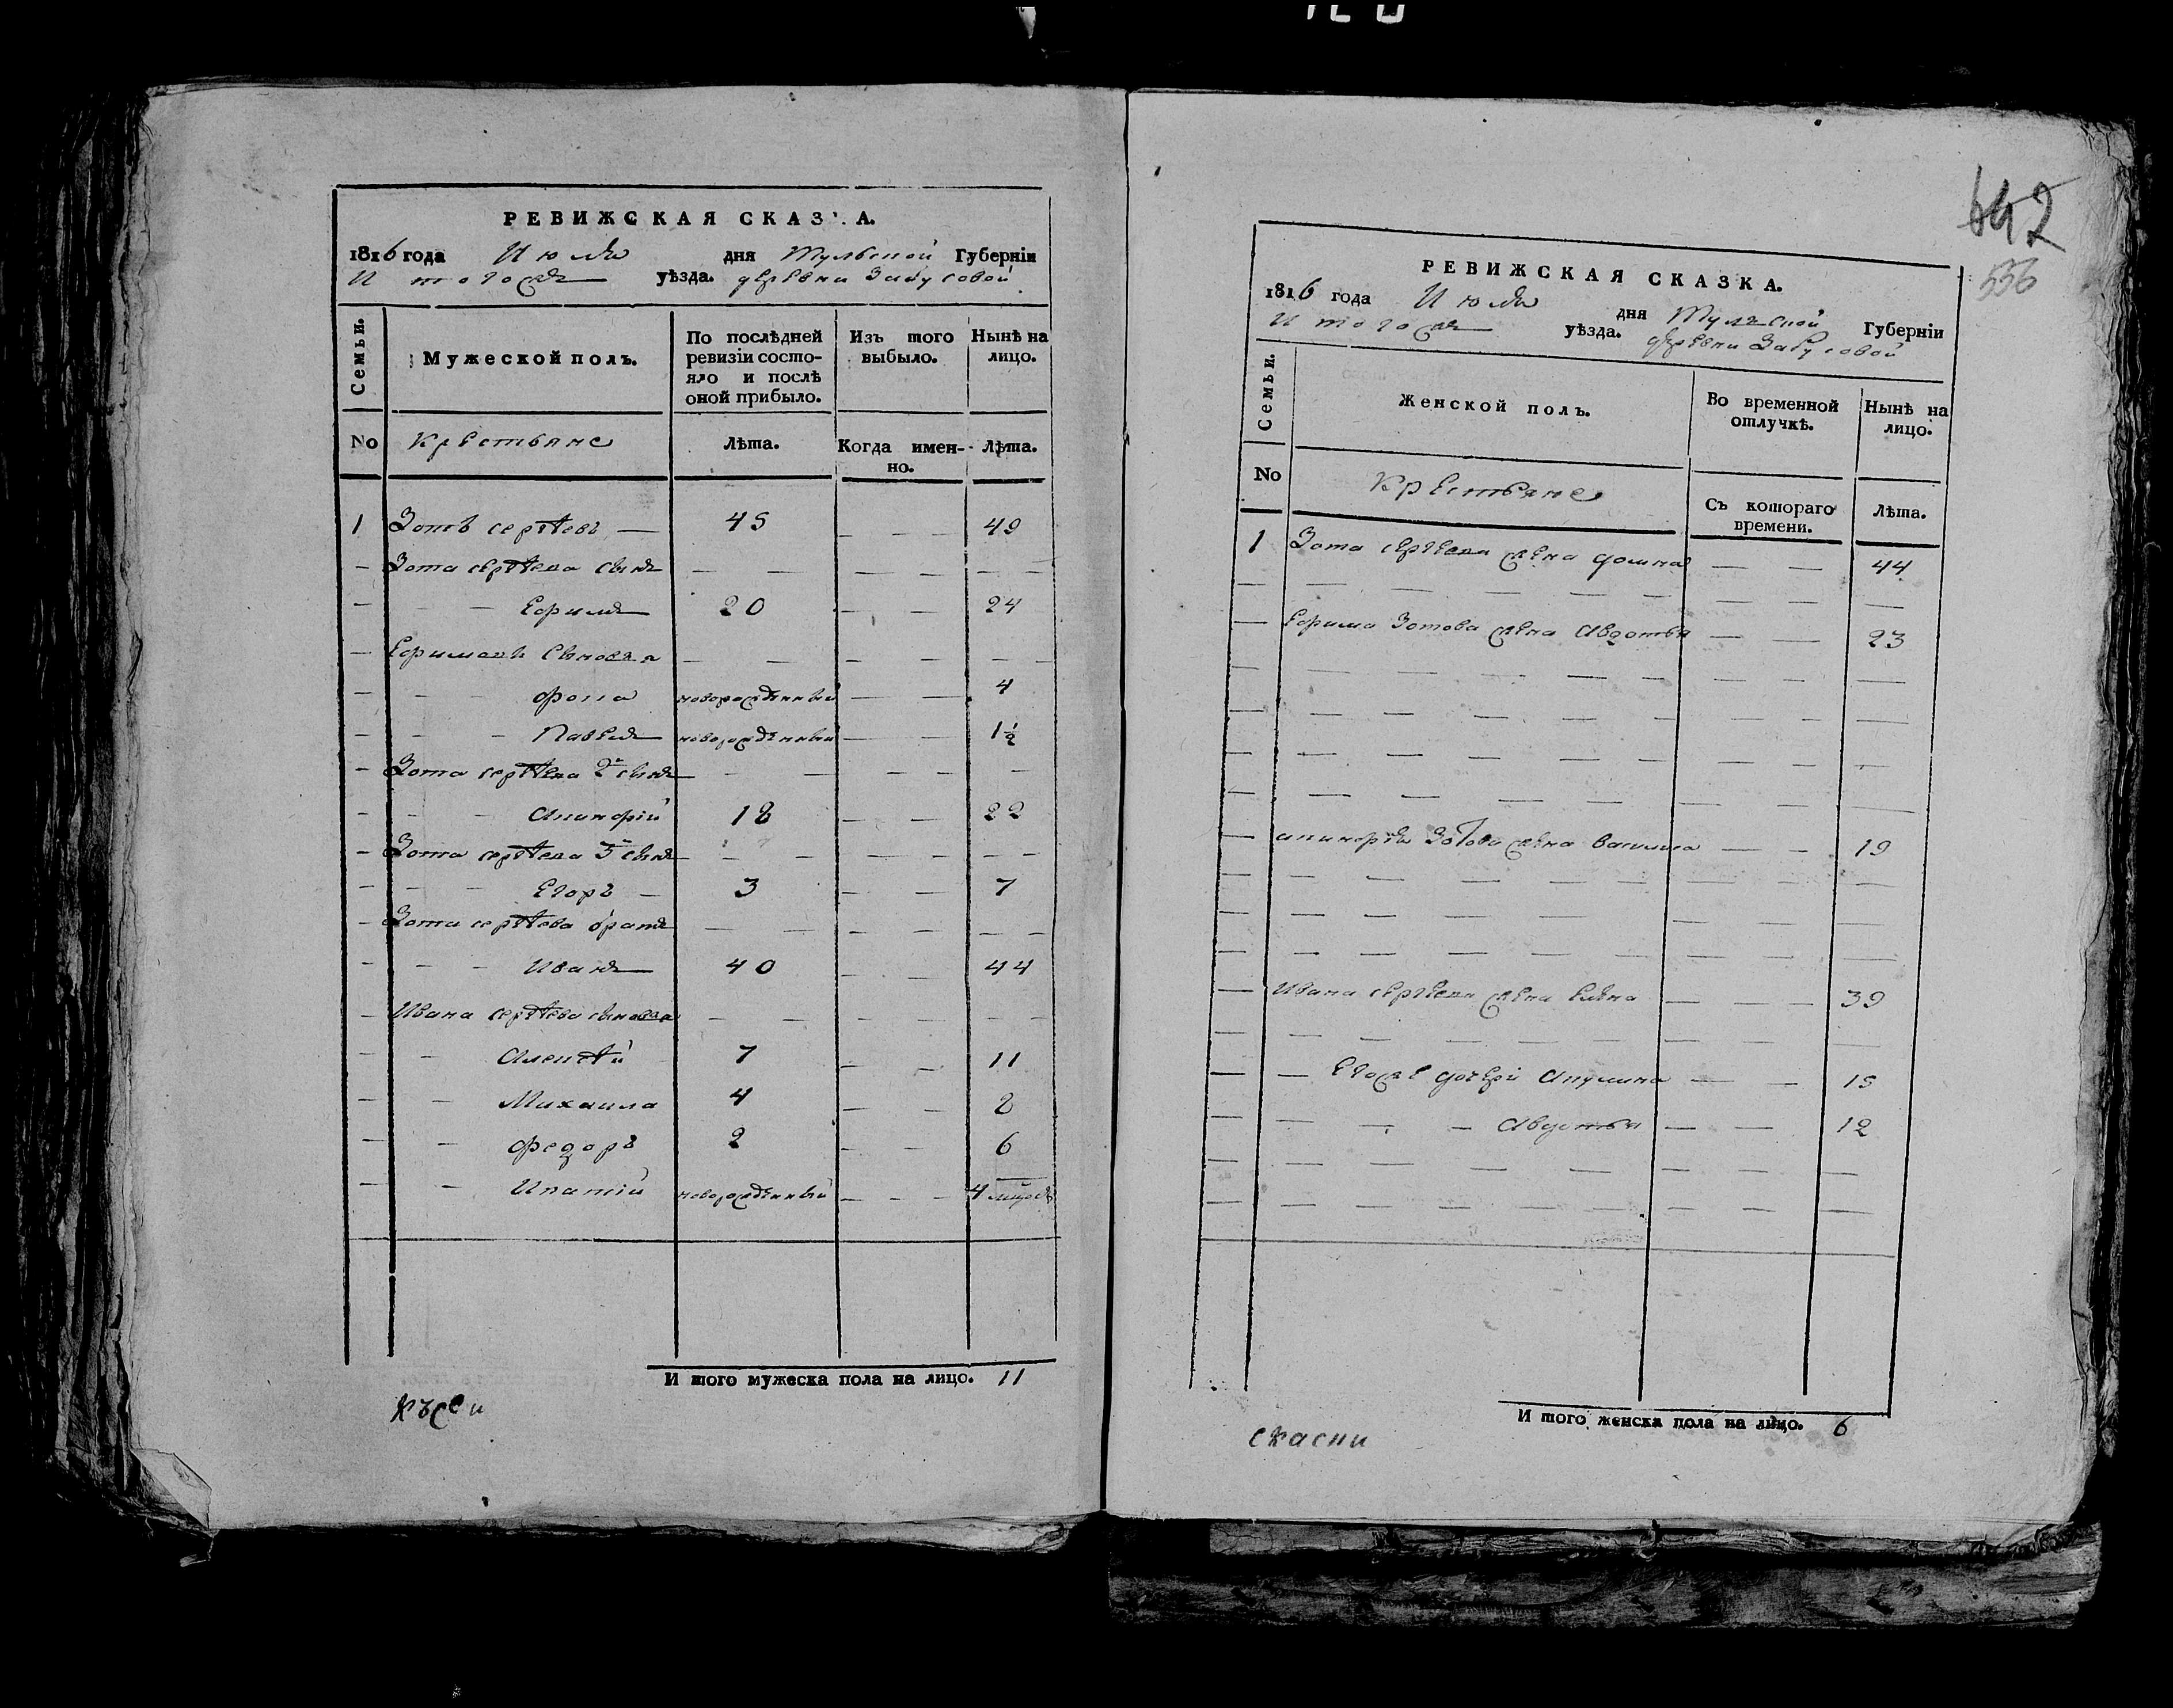 РЕВИЖСКАЯ СКАЗКА.
1816 года Июля дня Тульской Губерніи
И тогожъ уѣзда. деревни Забусовой
Семьи.
Мужеской полъ.
По послѣдней ревизіи состояло и послѣ оной прибыло.
Изъ того выбыло.
Нынѣ на лицо.
No Крестьяне Лѣта. Когда именно. Лѣта.
1 Зотъ сергѣевъ — 45 — — — 49
— Зота сергѣева сынъ — — — — — —
— — — Ефимъ 20 — — 24
— Ефимовы сыновья — — — — — —
— — — фома новорожденный — — 4
— — — Павелъ новорожденный — — 1½
— Зота сергѣева 2й сынъ — — — — —
— — — Анинфій 18 — — 22
— Зота сергѣева 3й сынъ — — — — — —
— — — Егоръ — 3 — — 7
— Зота сергѣева братъ — — — — — —
— — — Иванъ 40 — — 44
— Ивана сергѣева сыновья — — — — — —
— — Алексѣй 7 — — 11
— — Михаила 4 — — 8
— — федоръ 2 — — 6
— — Ипатій новорожденный — — — 4
И того мужеска пола на лицо. 11
къ сей
642
556
РЕВИЖСКАЯ СКАЗКА.
1816 года Июля дня Тульской Губерніи
И тогожъ уѣзда. деревни Забусовой
Семьи.
Женской полъ.
Во временной отлучкѣ.
Нынѣ на лицо.
No Крестьяне Съ котораго времени. Лѣта.
1 Зота сергѣева жена домна — — 44
— Ефима Зотова жена Авдотья — — 23
— анинфія Зотова жена василиса — — 19
— Ивана сергѣева жена елена — — — 39
— — Егожъ дочери Акулина — — 15
— — — — Авдотья — — 12
И того женска пола на лицо. 6
скаски